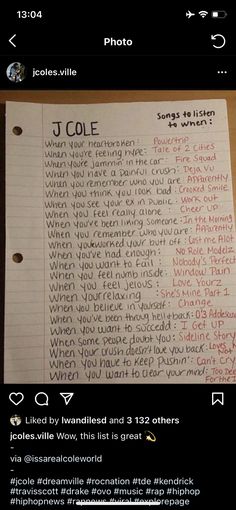 13:04
Photo
jcoles.ville
J COLE
Songs to listen
to when:
When your heartbroken: Powertrip
When you're feeling hype: Tale of 2 Cities
When you're jammin' in the car: Fire Squad
When you have a painful crush: Deja Vu
When you remember who you are: Apparently
When you think you look bad: Crooked Smile
When you see your ex in Public: Work out
When you feel really alone: Cheer up
When you've been missing someone: In the Morning
When you remember who you are: Apparently
When you worked your butt off: Got me Alot
When you've had enough: No Role Modelz
When you want to fail: Nobody's Perfect
When you feel numb inside: Window Pain
When you feel jelous: Love Yourz
When your relaxing: She's Mine Part 1
When you believe in yourself: Change
When you've been throug hell & back: 03 Adolescen
When you want to succedd: I Get UP
When some people doubt you: Sideline Story
When your crush doesn't love you back: Loves Me Not
When you have to keep Pushin': Can't Cry
When you want to clear your mind: Too Deep For the I
Liked by lwandilesd and 3 132 others
jcoles.ville Wow, this list is great 💫
-
via @issarealcoleworld
-
#jcole #dreamville #rocnation #tde #kendrick
#travisscott #drake #ovo #music #rap #hiphop
#hiphopnews #rapnews #viral #explorepage